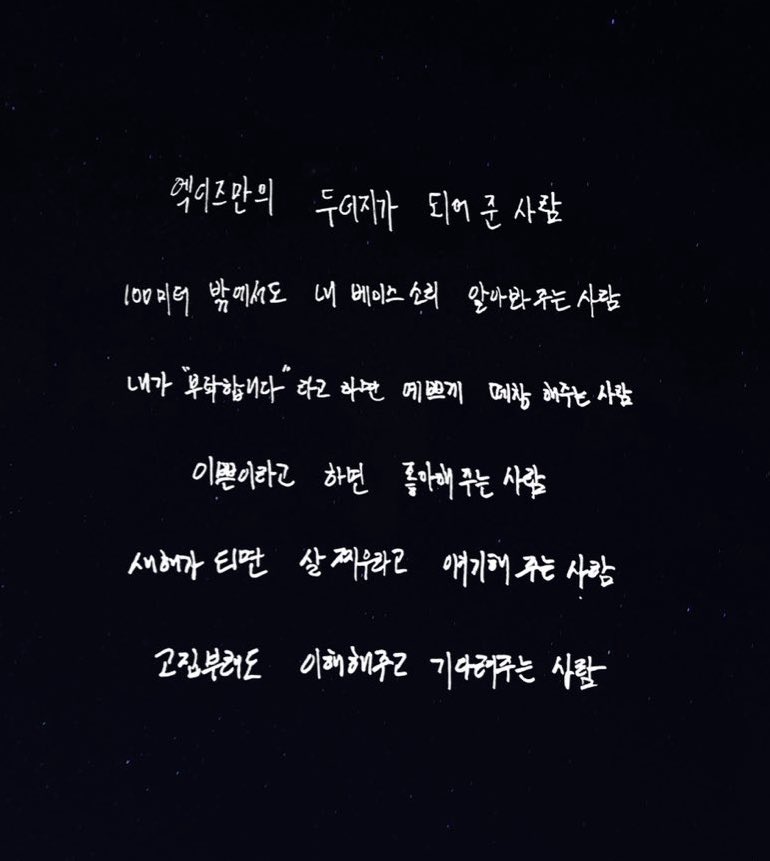 엑디즈만의 두더지가 되어 준 사람
100미터 밖에서도 내 베이스 소리 알아봐 주는 사람
내가 "부탁합니다"라고 하면 예쁘게 떼창 해주는 사람
이쁜이라고 하면 좋아해 주는 사람
살 찌우라고 얘기해 주는 사람
고집부려도 이해해주고 기다려주는 사람